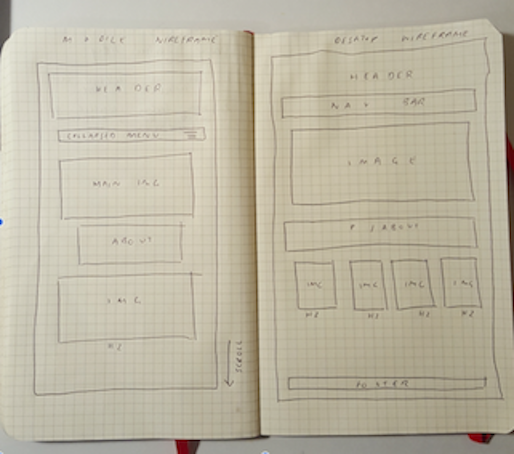 MOBILE WIREFRAME
HEADER
COLLAPSED MENU
MAIN IMG
ABOUT
IMG
H2
SCROLL
DESKTOP WIREFRAME
HEADER
NAV BAR
IMAGE
P ABOUT
IMG IMG IMG IMG
H2 H2 H2 H2
FOOTER